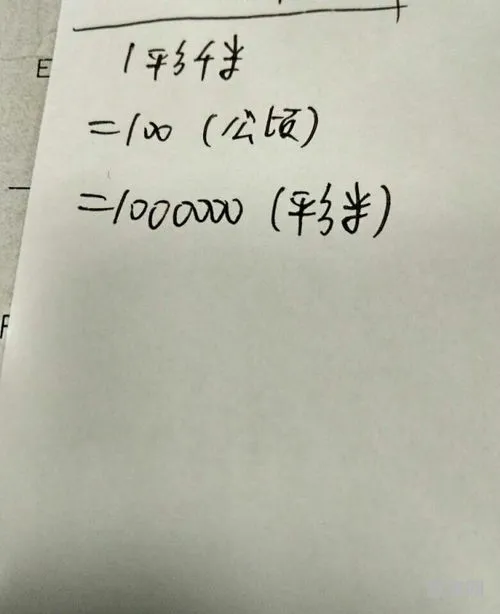 E
1平方千米
=100(公顷)
=1000000(平方米)
F